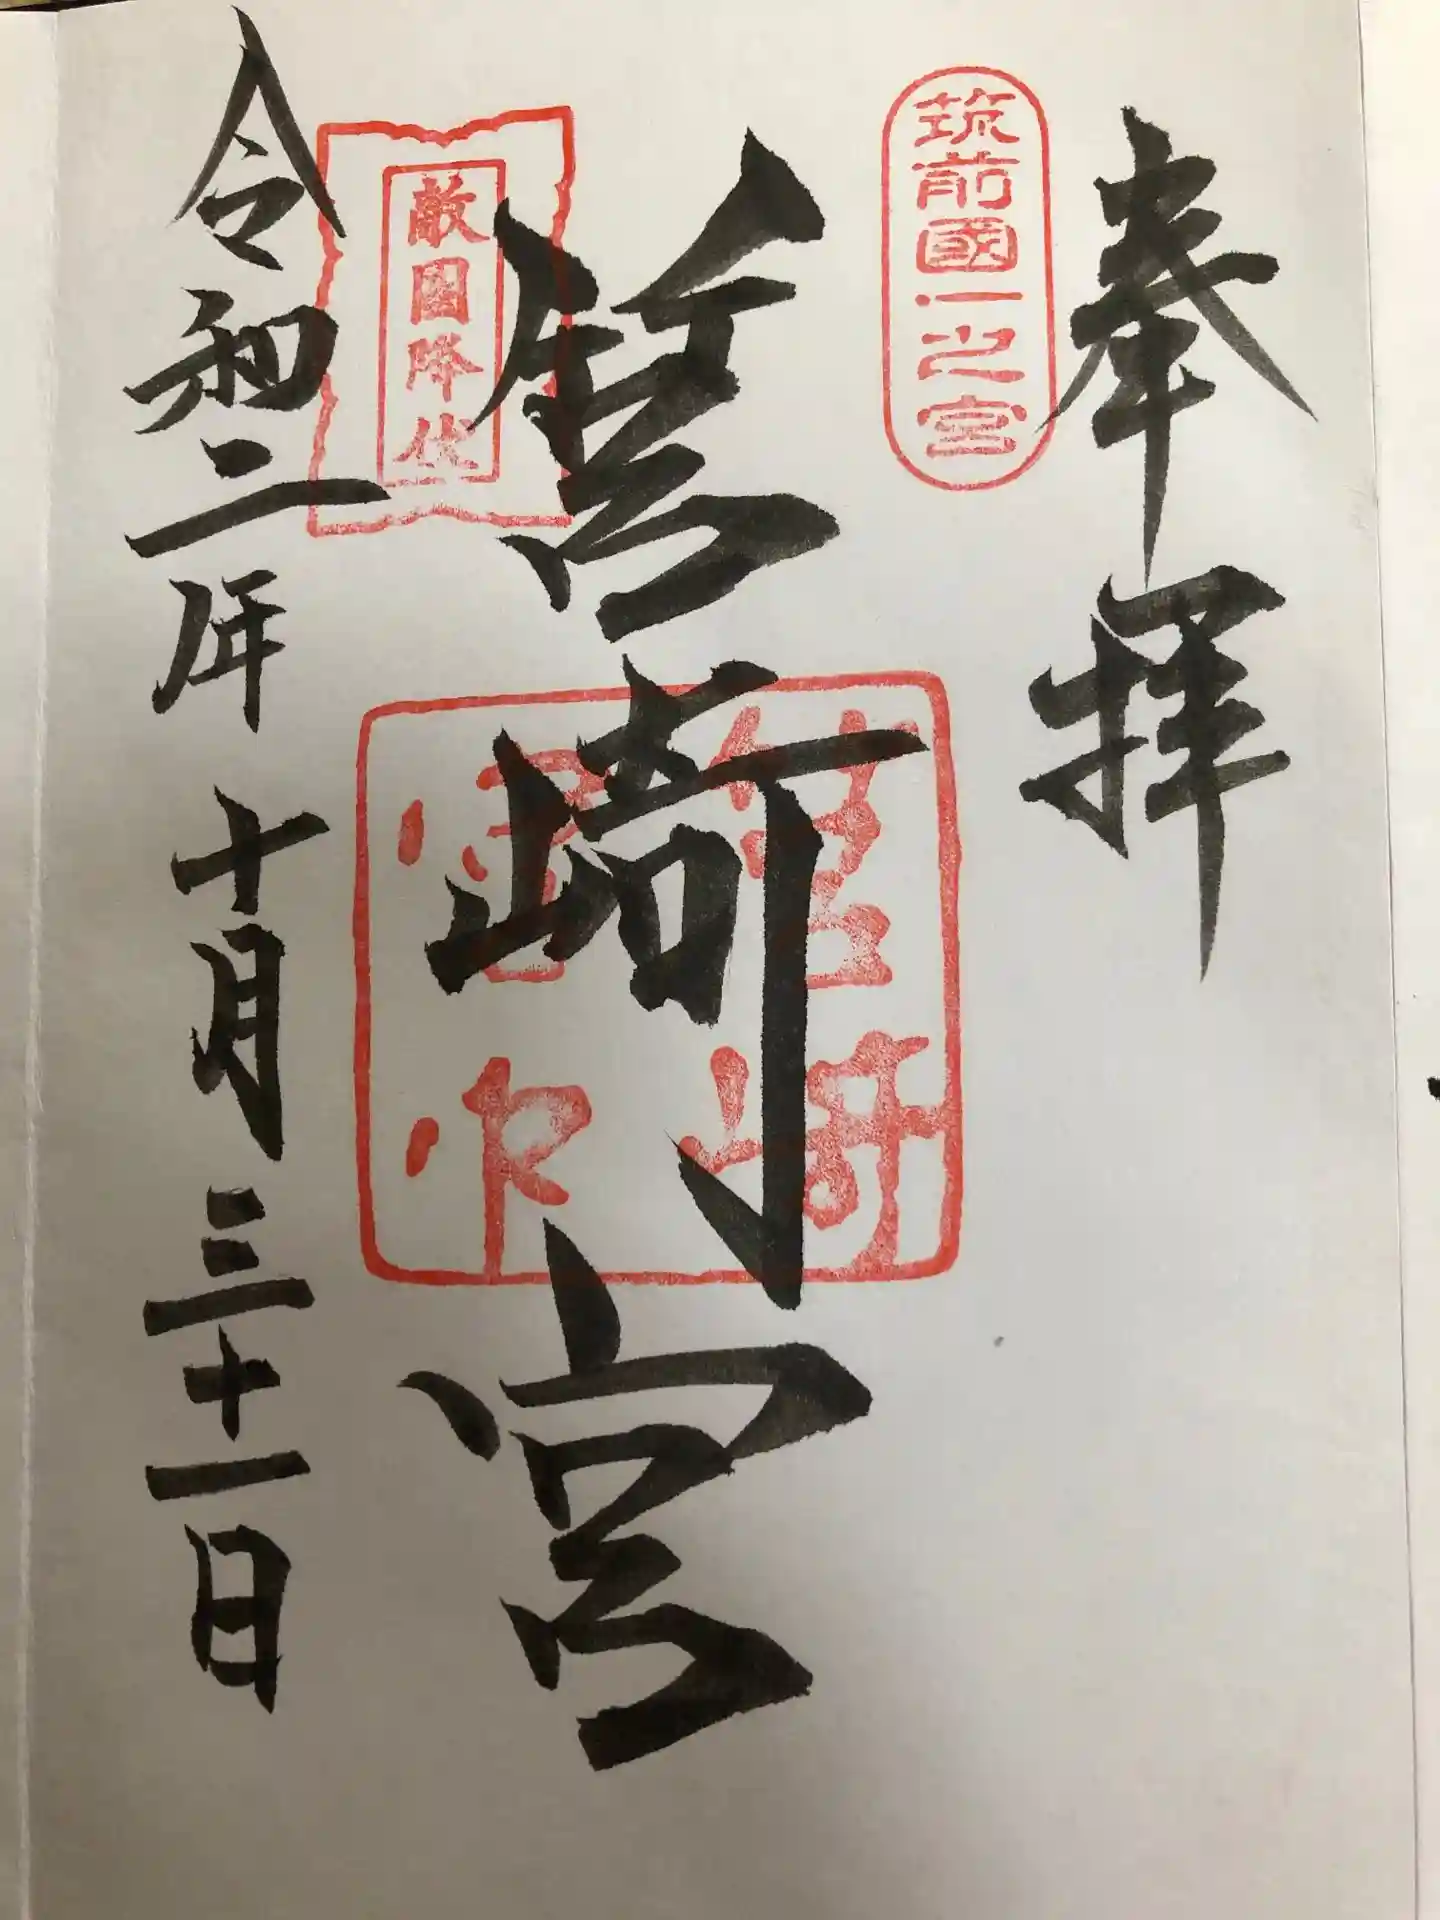 奉拝
筑前國一之宮
筥崎宮
敵国降伏
筥崎
宮印
令和二年十月三十一日